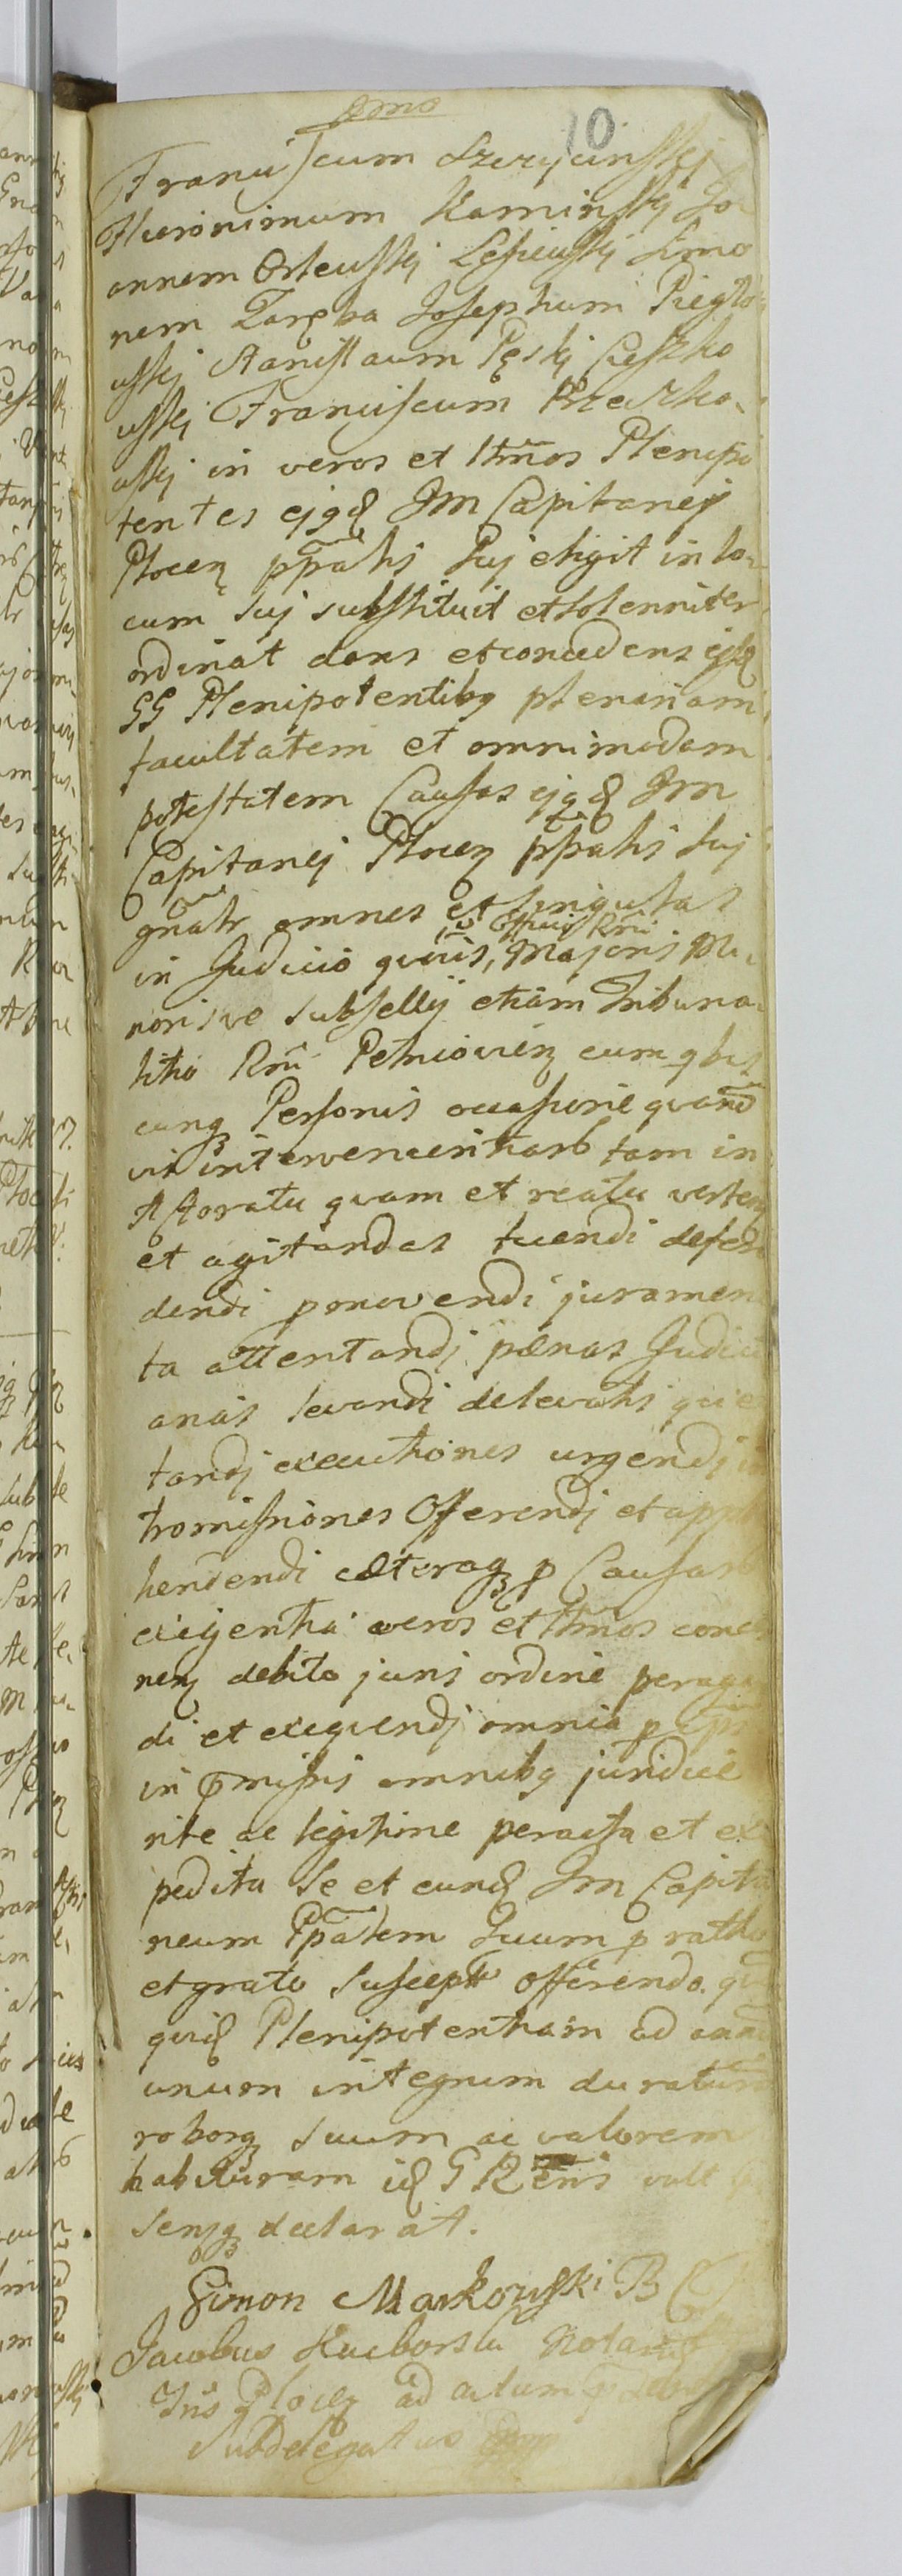 10
Franciscum Szczycinskij
Hieronimum Kaminskij Jo-
annem Orleuskij Lesieuskij Simo
nem Zaręba Josephum Pieglo-
uskij Stanislaum Pęskij Cieszko
uskij Franciscum Krzeczko-
uskij in veros et ltmos Plenipo
tentes ejqd Jm Capitanej
Plocen ppalis suj eligit in lo-
cum suj substituit et solenniter
ordinat dans et concedens ijsd
GG Plenipotentibq plenariam
facultatem et omnimodam
potestatem Causas ejqd Jm
Capitanej Plocen ppalis suj
gnalr omnes et singulas
in Judicio qvovis, Officio Rni Majoris Mi-
norisve subsellij etiam Tribuna-
litio Rni Petricovien cum qbus
cunqz Personis occasione qvavis
vit intervenien tam in
Actoratu qvam et reatu verten
et agitandas tuendi defen
dendi pmovendi juramen
ta attentandj pænas Judici
arias levandi de levatis qvie
tandj executiones urgendj in
tromissiones Offerendj et appre
hendendi cæteraqz p Causarum
exigentia veros et ltmos
nenz debito juris ordine peragen
di et exeqvendj omnia
in pmissis omnibq juridice
rite ac legitime peracta et ex
pedita Se et eund Jm Capita
neum Ppalem Suum p ratho
et grato suscept offerendo.
qvid Plenipotentiam ad annum
unum integrum duraturam
roborqz suum ac valorem
habituram id G Rens vult
senqz declarat.
Simon Markowski B
Jacobus Kucborski Notarius
Plocen ad actum
Subdelegatus